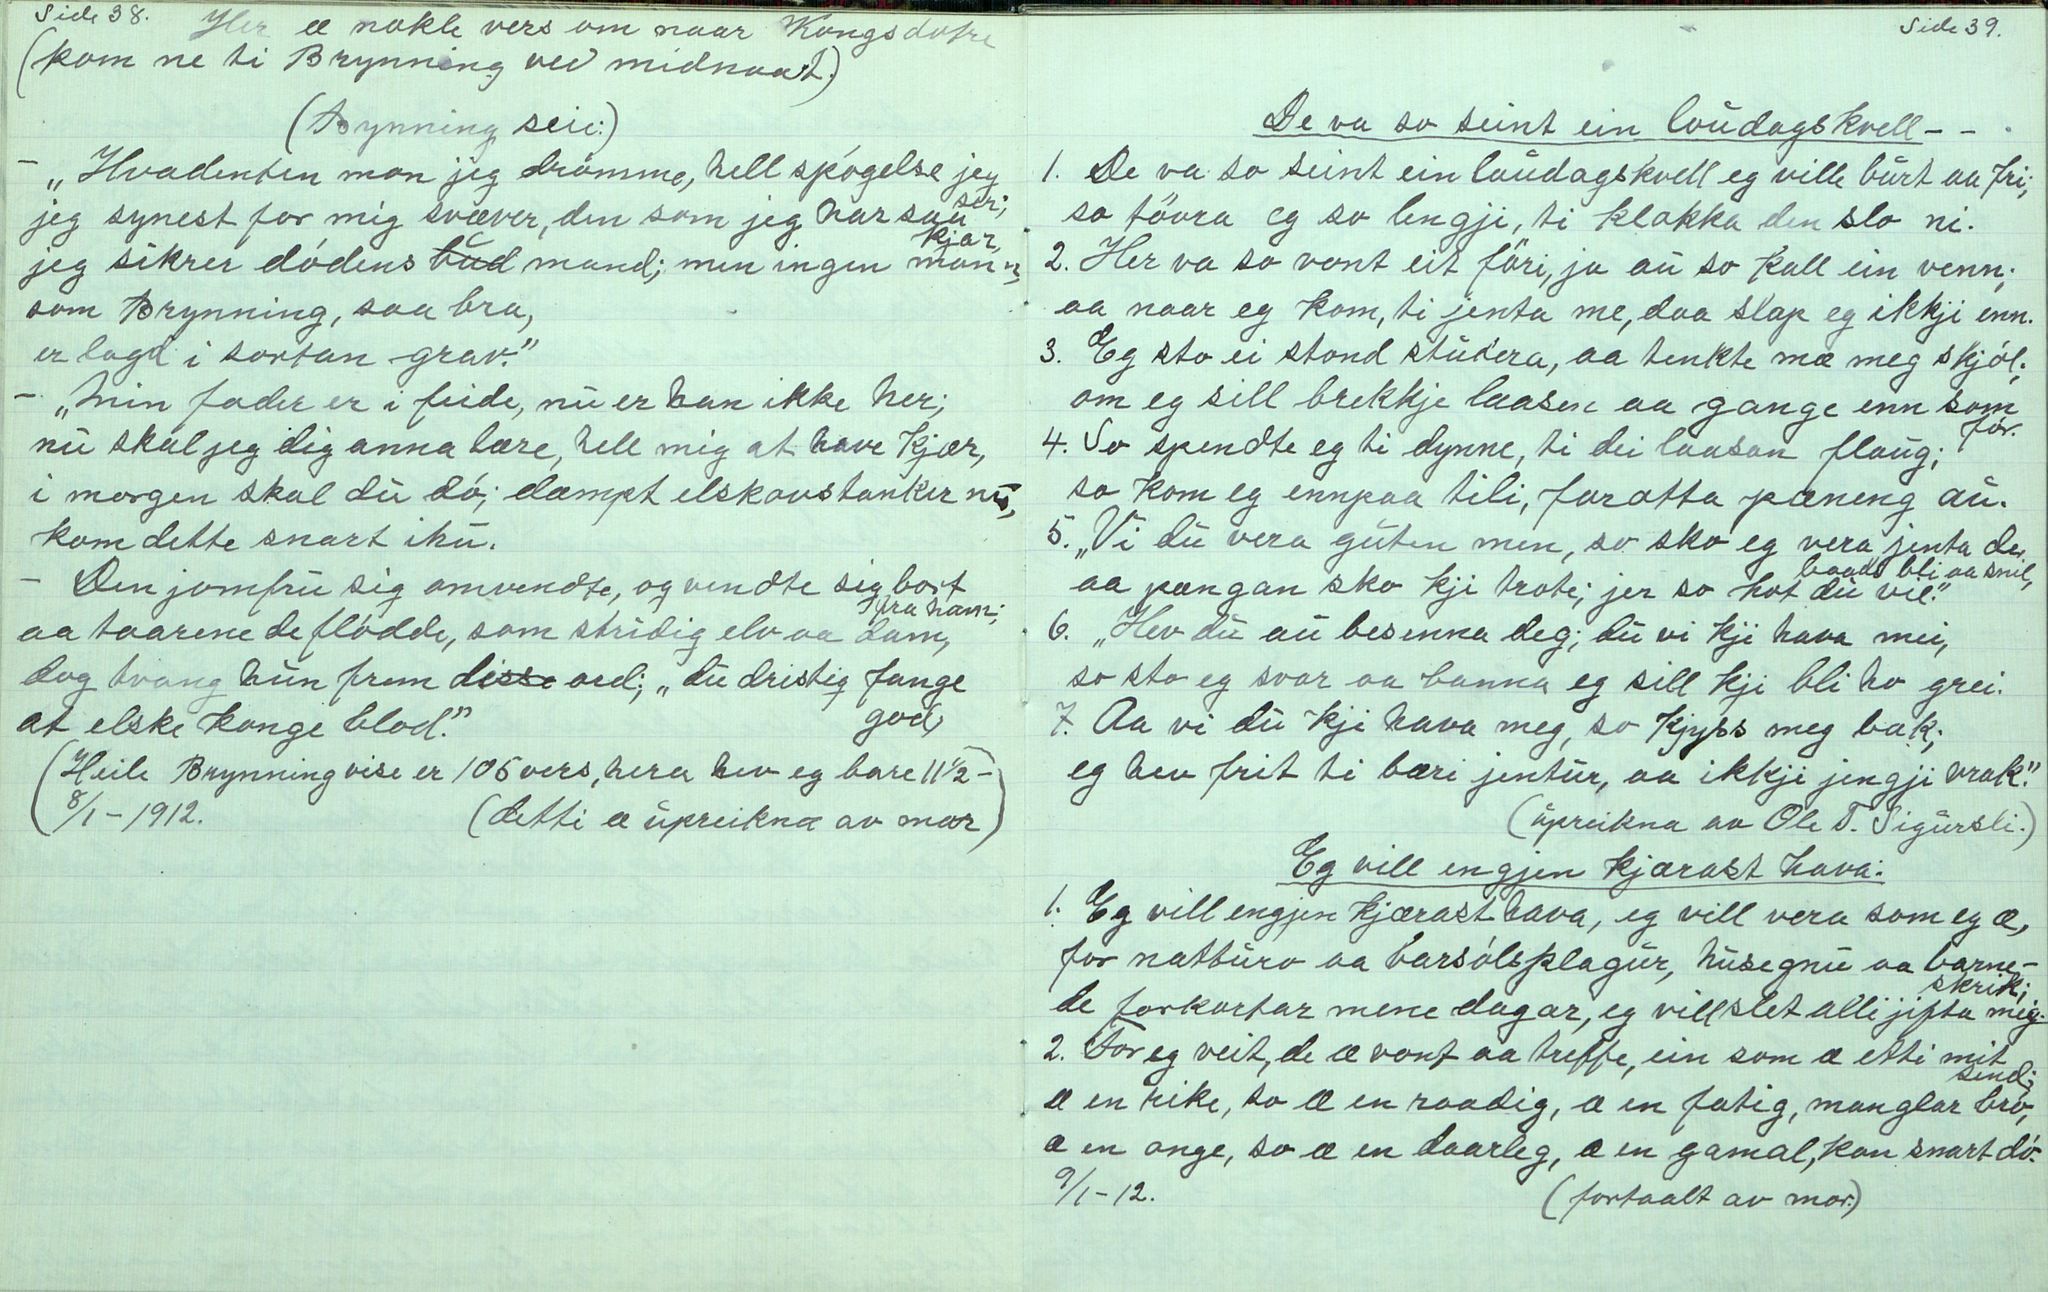 Side 38.
Her æ nokle vers om naar Kongsdotre
(kom ne ti Brynning ved midnaat.)
(Brynning seie:)
– „Hvadenten mon jeg drömme, hell spögelse jeg ser;
jeg synest for mig svæver, den som jeg har saa kjær,
jeg sikrer dödens bud mand; men ingen man
som Brynning, saa bra,
er lagd i sortan grav."
– „Min fader er i feide, nu er han ikke her;
nu skal jeg dig anna lære, hell mig at have kjær,
i morgen skal du dö; dæmpt elskovstanker nu,
kom dette snart ihu.
– Den jomfru sig omvendte, og vendte sig bort fra ham;
aa taarene de flödde, som stridig elv aa dam,
dog tvang hun frem disse ord; „du dristig fange god,
at elske konge blod."
(Heile Brynningvise er 105 vers, hera hev eg bare 11½ –
8/1 – 1912. (detti æ upreikna av mor)
Side 39.
De va so seint ein laudagskvell – –
1. De va so seint ein laudagskvell eg ville burt aa fri;
so tövra eg so lengji, ti klokka den slo ni.
2. Her va so vont eit föri, ja au so kall ein venn;
aa naar eg kom, ti jenta me, daa slap eg ikkji enn.
3. Eg sto ei stond studera, aa tenkte mæ meg skjöl;
om eg sill brekkje laasen aa gange enn som för.
4. So spendte eg ti dynne, ti dei laasan flaug;
so kom eg ennpaa tili, foratta pæneng au.
5. „Vi du vera guten men, so sko eg vera jenta dei,
aa pængan sko kji trote; jer so hot du vil." baade bli aa snil,
6. „Hev du au besenna deg; du vi kji hava mei,
so sto eg svor aa banna eg sill kji bli ho grei.
7. Aa vi du kji hava meg, so kjyss meg bak;
eg hev frit ti bæri jentur, aa ikkji jengji vrak."
(upreikna av Ole T. Sigursli.)
Eg vill engjen kjærast hava.
1. Eg vill engjen kjærast hava, eg vill vera som eg æ,
for natturo aa barsölsplagur, husegnu aa barneskrik;
de forkortar mene dagar, eg vill slet alli jifta mig.
2. For eg veit, de æ vont aa treffe, ein som æ etti mit sind;
æ en rike, so æ en raadig, æ en fatig, manglar brö,
æ en onge, so æ en daarleg, æ en gamal, kan snart dö.
9/1 – 12. (fortaalt av mor.)